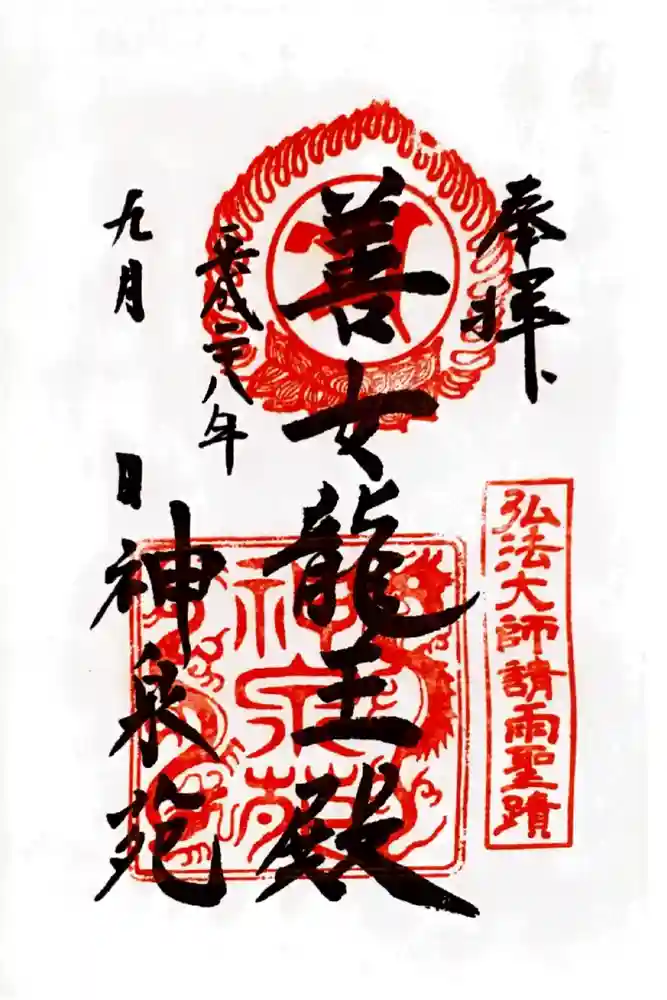 奉拝
弘法大師請雨聖蹟
善女龍王殿
平成二八年
九月 日
神泉苑
神泉苑